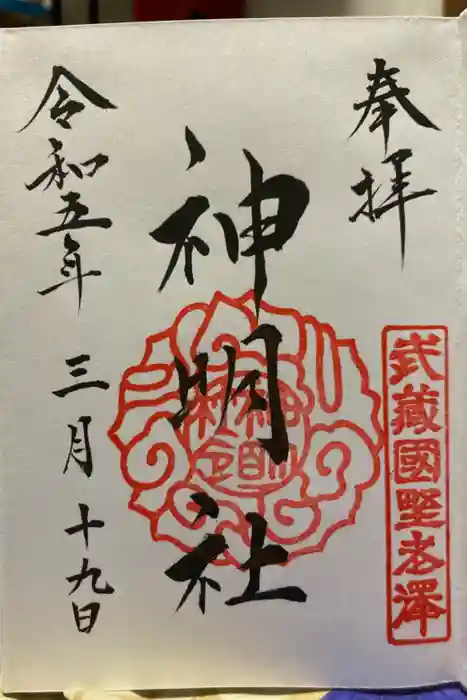 奉拝
武蔵國野老澤
神明社
令和五年 三月十九日